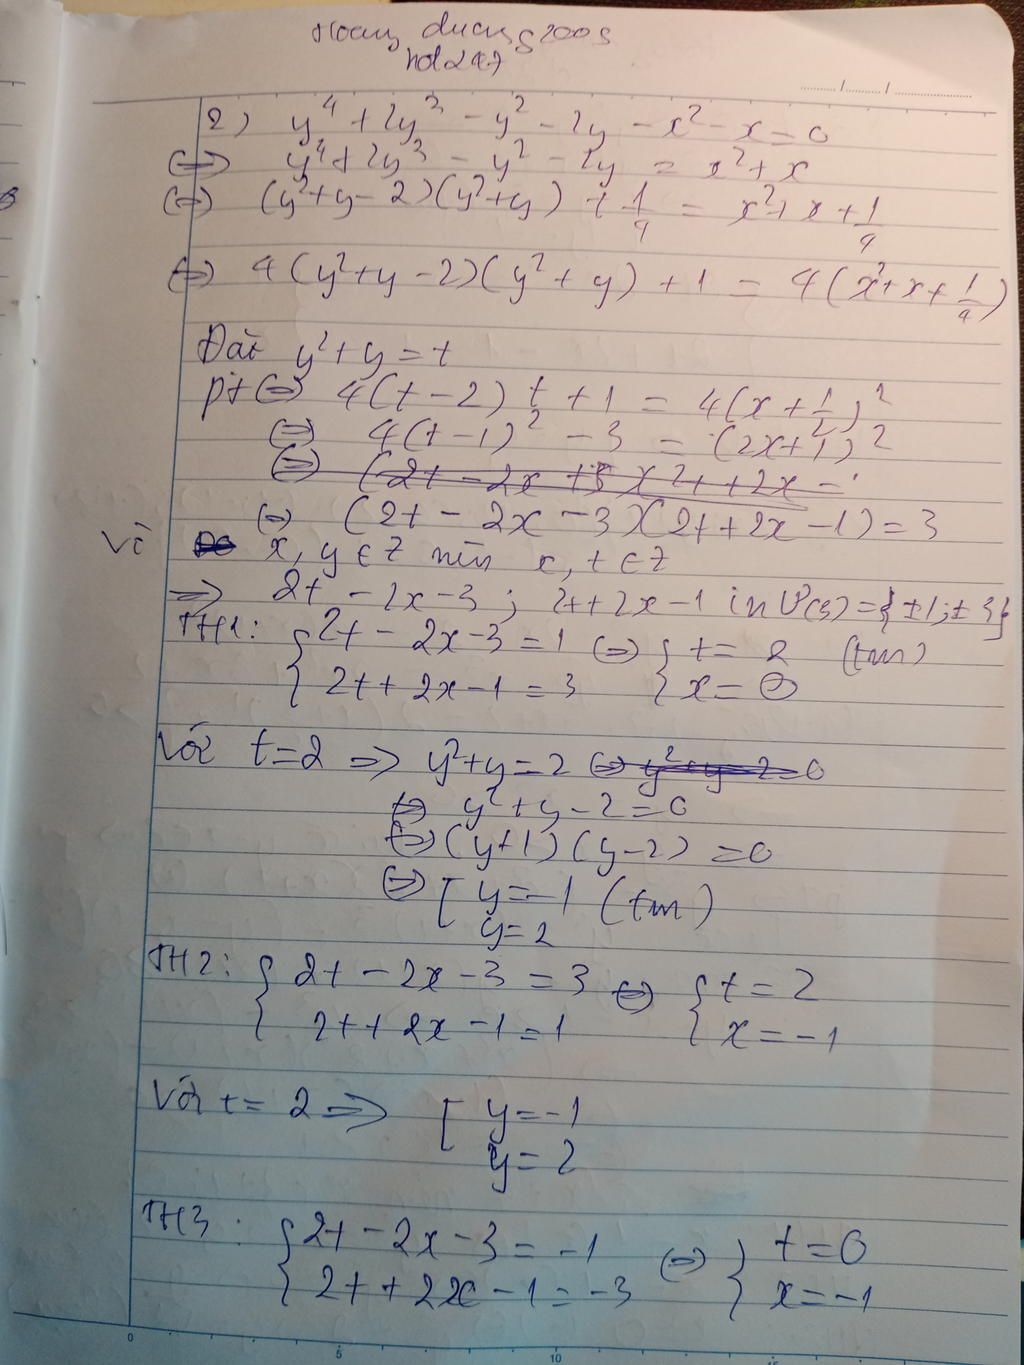 Hoang duong 2005
hd247
2) y⁴ + 2y³ - y² - 2y - x² - x = 0
⇔ y⁴ + 2y³ - y² - 2y = x² + x
⇔ (y² + y - 2)(y² + y) + 1/4 = x² + x + 1/4
⇔ 4(y² + y - 2)(y² + y) + 1 = 4(x² + x + 1/4)
Đặt y² + y = t
pt ⇔ 4(t - 2) t + 1 = 4(x + 1/2)²
⇔ 4(t - 1)² - 3 = (2x + 1)²
⇔ (2t - 2x - 3)(2t + 2x - 1) = 3
Vì x, y ∈ Z nên x, t ∈ Z
⇒ 2t - 2x - 3 ; 2t + 2x - 1 in Ư(3) = {±1; ±3}
TH1: { 2t - 2x - 3 = 1 ⇔ { t = 2 (tm)
{ 2t + 2x - 1 = 3 { x = 0
Với t = 2 ⇒ y² + y = 2 ⇔ y² + y - 2 = 0
⇔ y² + y - 2 = 0
⇔ (y + 1)(y - 2) = 0
⇔ [ y = -1 (tm)
y = 2
TH2: { 2t - 2x - 3 = 3 ⇔ { t = 2
{ 2t + 2x - 1 = 1 { x = -1
Với t = 2 ⇒ [ y = -1
y = 2
TH3: { 2t - 2x - 3 = -1 ⇔ } t = 0
{ 2t + 22x - 1 = -3 } x = -1
0 5 10 15